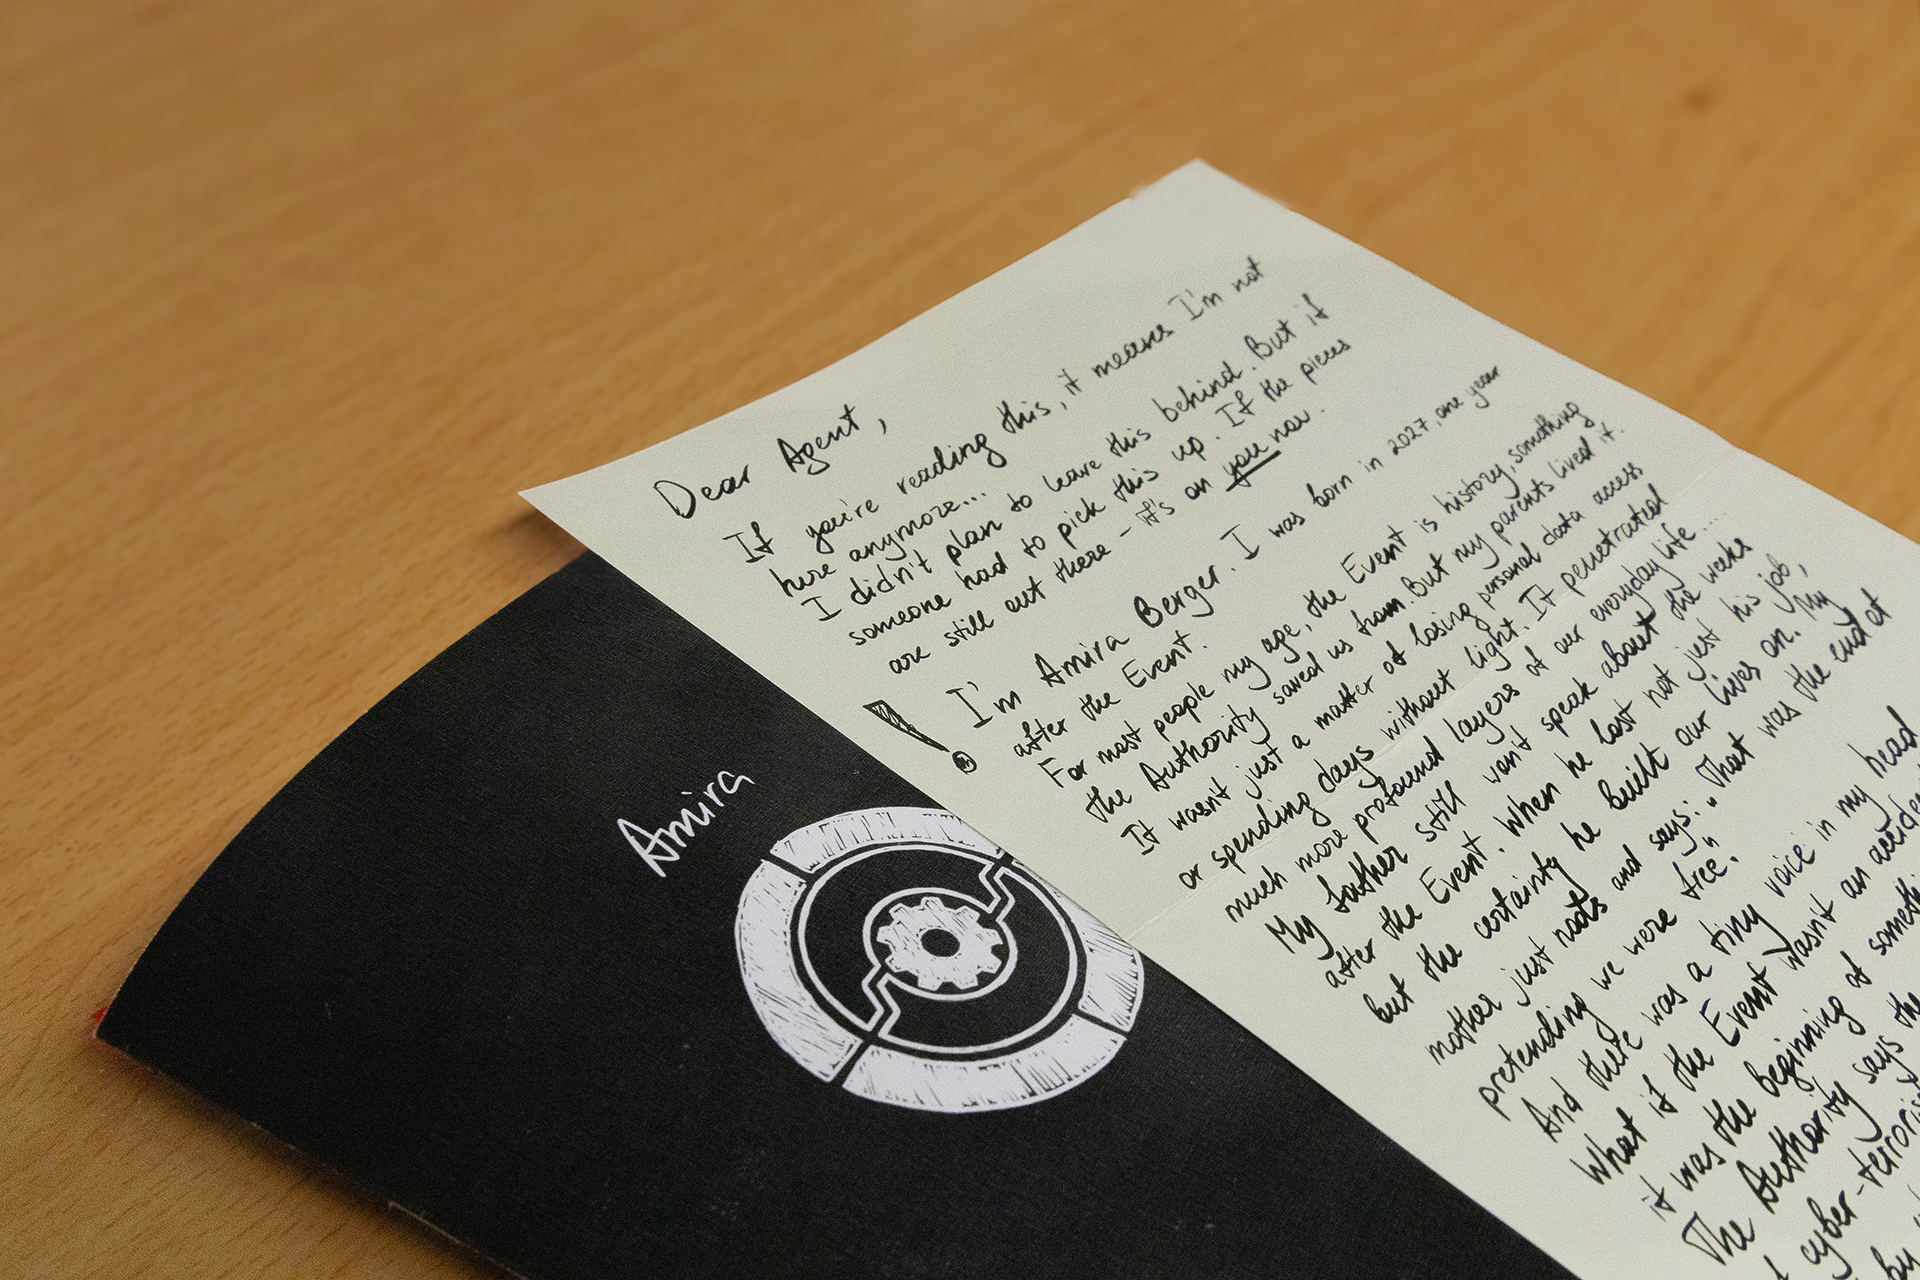 Dear Agent,
If you're reading this, it means I'm not
here anymore...
I didn't plan to leave this behind. But if
someone had to pick this up. If the pieces
are still out there - it's on you now.
I'm Amira Berger. I was born in 2027, one year
after the Event.
For most people my age, the Event is history, something
the Authority saved us from. But my parents lived it.
It wasn't just a matter of losing personal data access
or spending days without light. It penetrated
much more profound layers of our everyday life....
My father still won't speak about the weeks
after the Event. When he lost not just his job,
but the certainty he built our lives on. My
mother just nods and says: "That was the end of
pretending we were free".
And there was a tiny voice in my head
What if the Event wasn't an
it was the beginning of
The Authority says the
cyber-
by
Amira